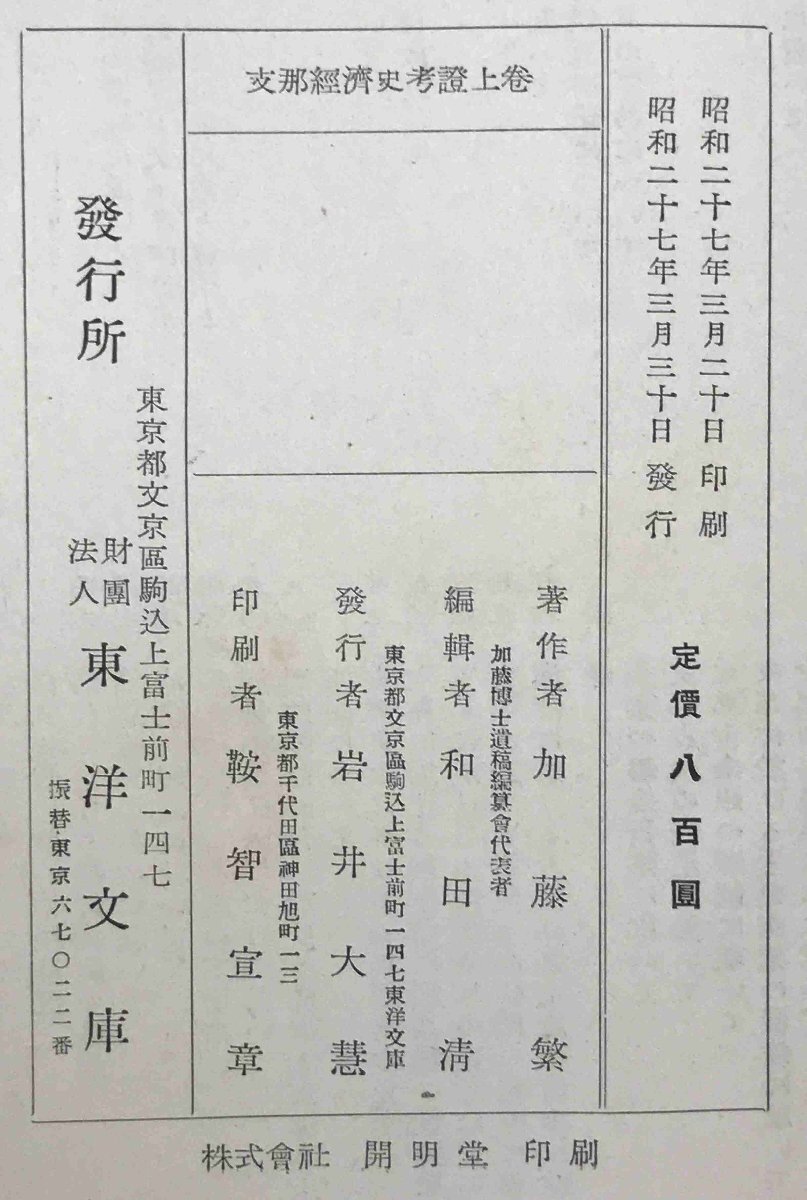 昭和二十七年三月二十日印刷
昭和二十七年三月三十日發行
定價八百圓
支那經濟史考證上卷
著作者加藤繁
加藤博士遺稿編纂會代表者
編輯者和田淸
東京都文京區駒込上富士前町一四七東洋文庫
發行者岩井大慧
東京都千代田區神田旭町一三
印刷者鞍智宣章
東京都文京區駒込上富士前町一四七
發行所
財團法人東洋文庫
振替東京六七〇二二番
株式會社 開明堂 印刷